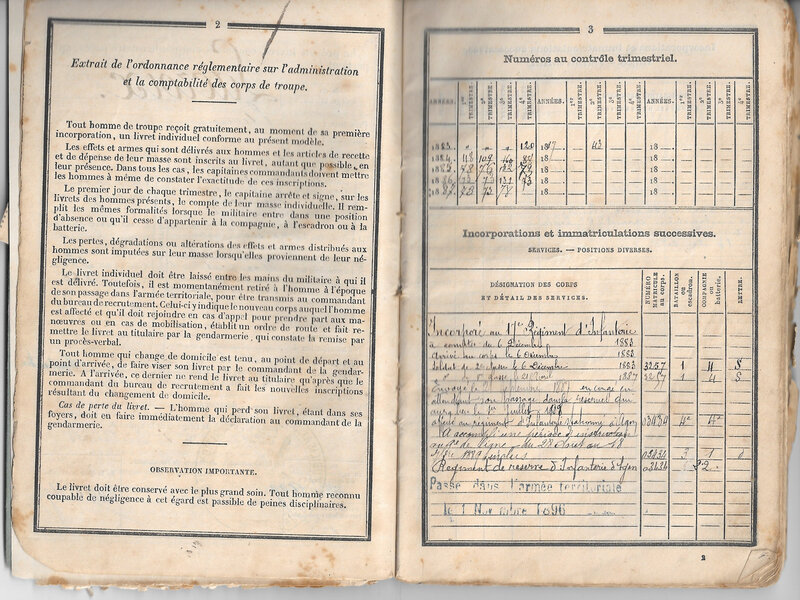 2
Extrait de l'ordonnance réglementaire sur l'administration
et la comptabilité des corps de troupe.
Tout homme de troupe reçoit gratuitement, au moment de sa première
incorporation, un livret individuel conforme au présent modèle.
Les effets et armes qui sont délivrés aux hommes et les articles de recette
et de dépense de leur masse sont inscrits au livret, autant que possible, en
leur présence. Dans tous les cas, les capitaines commandants doivent mettre
les hommes à même de constater l'exactitude de ces inscriptions.
Le premier jour de chaque trimestre, le capitaine arrête et signe, sur les
livrets des hommes présents, le compte de leur masse individuelle. Il rem-
plit les mêmes formalités lorsque le militaire entre dans une position
d'absence ou qu'il cesse d'appartenir à la compagnie, à l'escadron ou à la
batterie.
Les pertes, dégradations ou altérations des effets et armes distribués aux
hommes sont imputées sur leur masse lorsqu'elles proviennent de leur né-
gligence.
Le livret individuel doit être laissé entre les mains du militaire à qui il
est délivré. Toutefois, il est momentanément retiré à l'homme à l'époque
de son passage dans l'armée territoriale, pour être transmis au commandant
du bureau de recrutement. Celui-ci y indique le nouveau corps auquel l'homme
est affecté et qu'il doit rejoindre en cas d'appel pour prendre part aux ma-
nœuvres ou en cas de mobilisation, établit un ordre de route et fait re-
mettre le livret au titulaire par la gendarmerie, qui constate la remise par
un procès-verbal.
Tout homme qui change de domicile est tenu, au point de départ et au
point d'arrivée, de faire viser son livret par le commandant de la gendar-
merie. A l'arrivée, ce dernier ne rend le livret au titulaire qu'après que le
commandant du bureau de recrutement a fait les nouvelles inscriptions
résultant du changement de domicile.
Cas de perte du livret. — L'homme qui perd son livret, étant dans ses
foyers, doit en faire immédiatement la déclaration au commandant de la
gendarmerie.
OBSERVATION IMPORTANTE.
Le livret doit être conservé avec le plus grand soin. Tout homme reconnu
coupable de négligence à cet égard est passible de peines disciplinaires.
3
Numéros au contrôle trimestriel.
ANNÉES. 1er TRIMESTRE. 2e TRIMESTRE. 3e TRIMESTRE. 4e TRIMESTRE. ANNÉES. 1er TRIMESTRE. 2e TRIMESTRE. 3e TRIMESTRE. 4e TRIMESTRE. ANNÉES. 1er TRIMESTRE. 2e TRIMESTRE. 3e TRIMESTRE. 4e TRIMESTRE.
1883 " " " 120 18 43 18
1884 18 18
1885 18 18
1886 18 18
18 18 18
Incorporations et immatriculations successives.
SERVICES. — POSITIONS DIVERSES.
DÉSIGNATION DES CORPS
ET DÉTAIL DES SERVICES.
NUMÉRO MATRICULE au corps.
BATAILLON ou escadron.
COMPAGNIE ou batterie.
LETTRE.
Incorporé au Régiment d'Infanterie
à compter du 6 Décembre 1883
arrivé au corps le 6 Décembre 1883
Soldat de 2e classe le 6 Décembre 1883 3257 1 4 S
1887 3257 1 4 S
envoyé en congé en
attendant son passage dans la réserve
1er Juillet
au régiment d'Infanterie 03434 4e 4e
A accompli une période d'instruction
au de ligne du 28 Août au
03434 3 1
Régiment de réserve d'Infanterie 03434 22
Passé dans l'armée territoriale
le 1 Novembre 1896
2